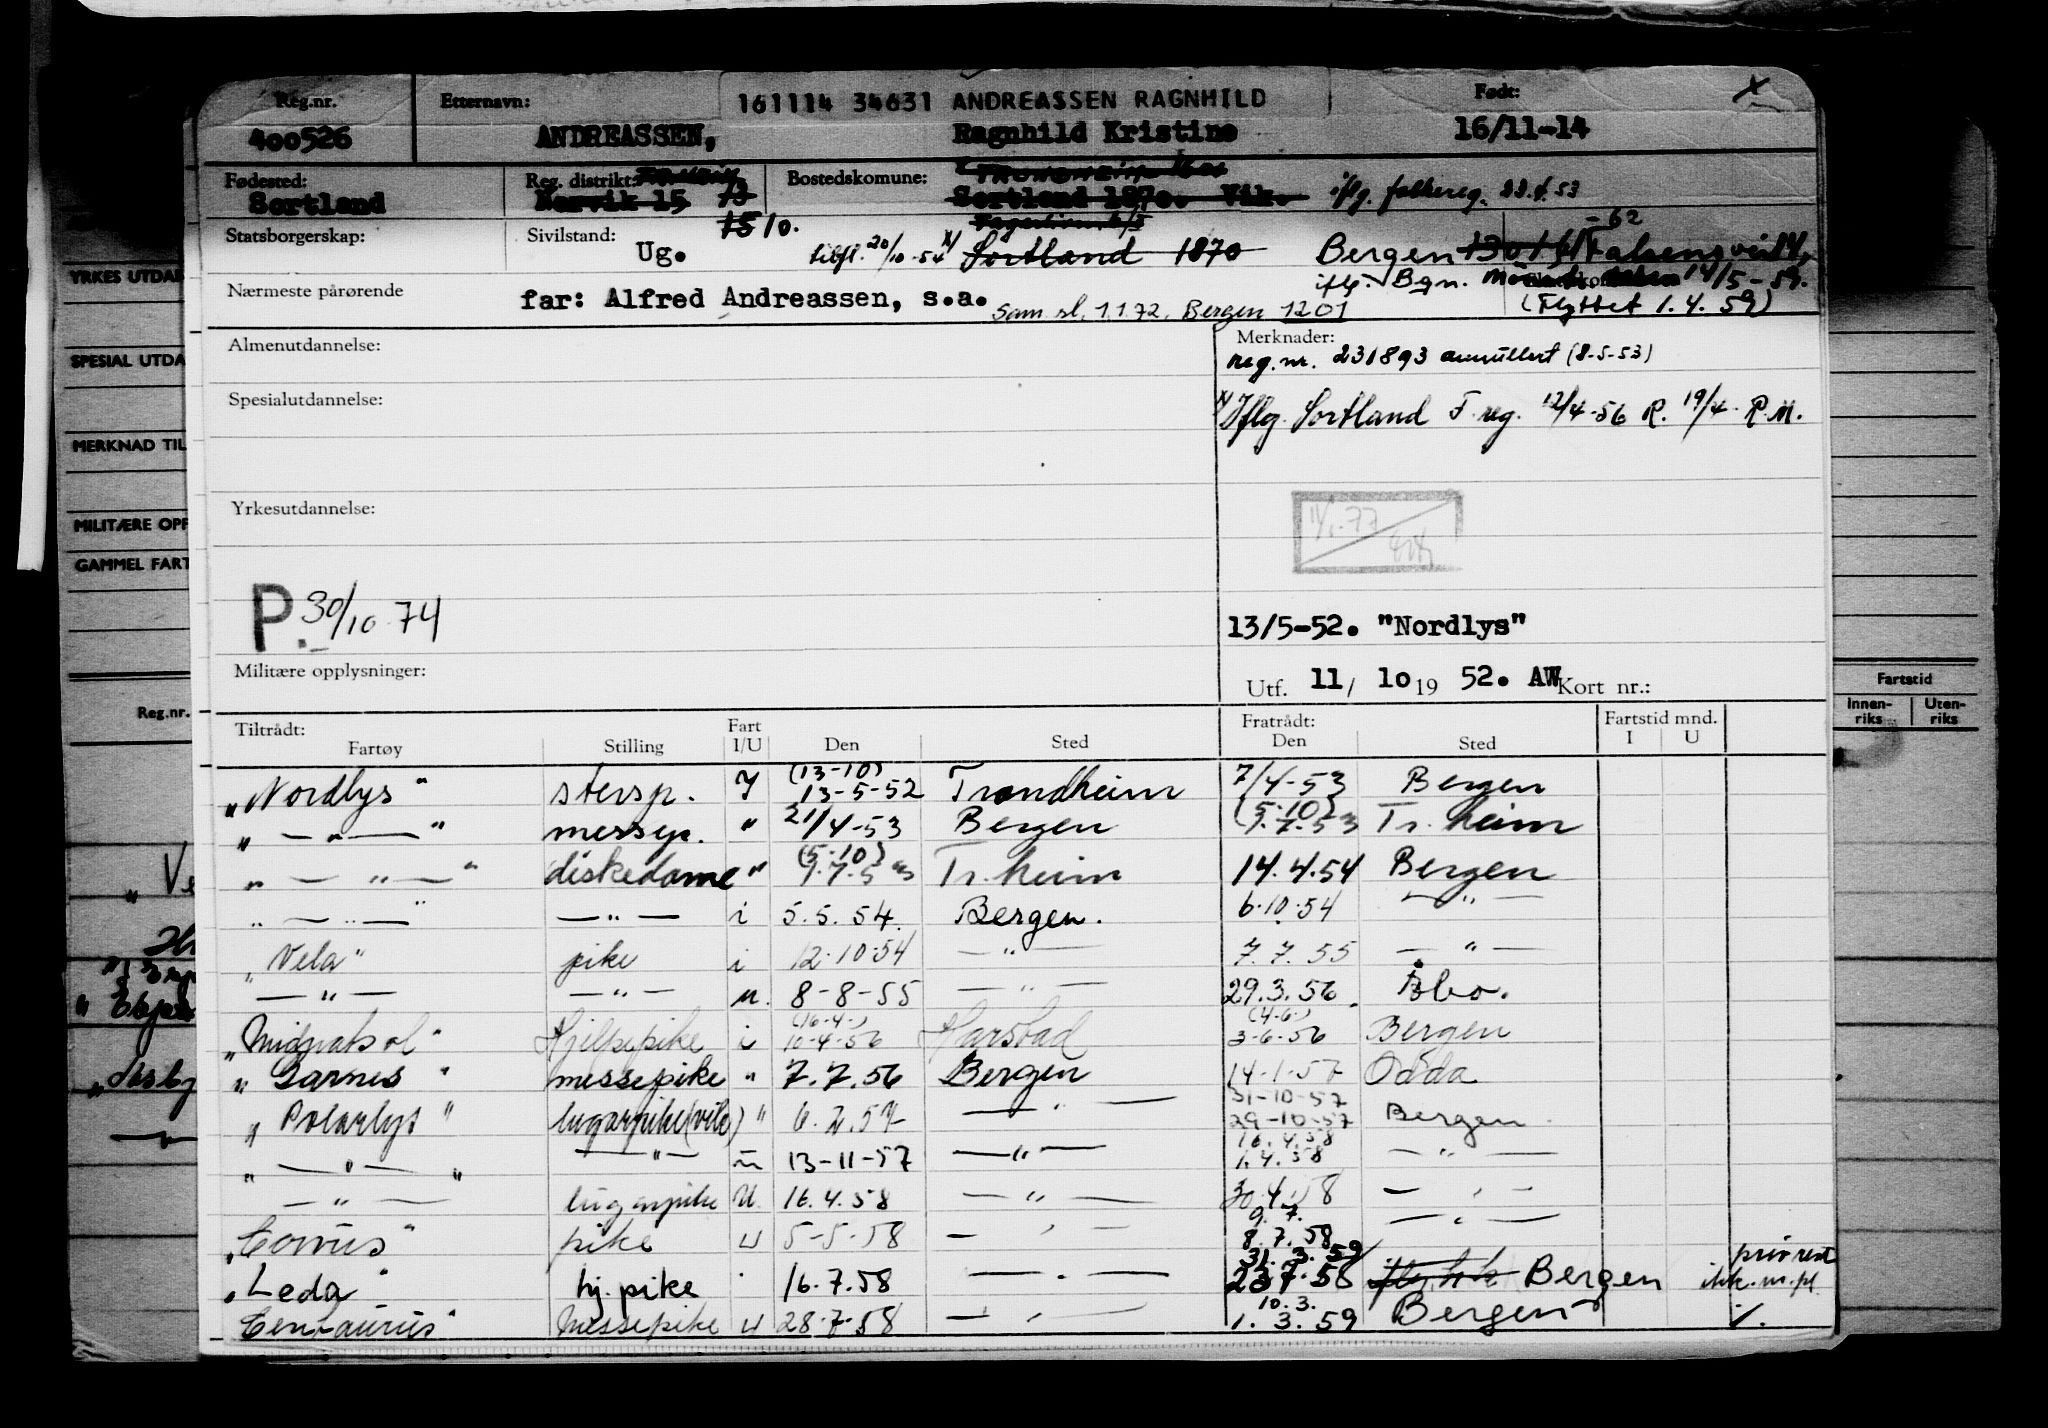 Reg.nr. Etternavn: 161114 34631 ANDREASSEN RAGNHILD Født: x
400526 ANDREASSEN, Ragnhild Kristine 16/11-14
Fødested: Reg. distrikt: Bostedskomune:
Sortland Narvik 15 73 Sortland 1870. Vik. iflg. folkereg. 22.4.53
15 10. -62
Statsborgerskap: Sivilstand: Ug. tilfl. 20/10-54 x) Sortland 1870 Bergen 1301
iflg. Bgn. 14/5-59.
Nærmeste pårørende far: Alfred Andreassen, s.a. Sam. sl. 1.1.72. Bergen 1201 (Flyttet 1.4.59)
Almenutdannelse: Merknader:
reg.nr. 231893 annullert (8-5-53)
Spesialutdannelse: x) Iflg. Sortland F.reg. 12/4-56 R. 19/4- R.M.
Yrkesutdannelse: 11/1-77
P. 30/10 74
13/5-52. "Nordlys"
Militære opplysninger: Utf. 11/ 10 19 52. AW Kort nr.:
Tiltrådt: Fart Fratrådt: Fartstid mnd.
Fartøy Stilling I/U Den Sted Den Sted I U
(13-10)
"Nordlys" stersp. I 13-5-52 Trondheim 7/4-53 Bergen
(5-10)
" — " — " messep. " 21/4-53 Bergen 9.7.53 Tr.heim
(5-10)
" — " — " diskedame " 9.7.53 Tr.heim 14.4.54 Bergen
" — " — " — " — i 5.5.54. Bergen. 6.10.54 — " —
"Vela" pike i 12.10.54 — " — 7.7.55 — " —
— " — — " — u. 8-8-55 — " — 29.3.56
(16-4-) (4-6-)
"Midnatsol" Hjelpepike i 10-4-56 Harstad 3-6-56 Bergen
"Garnes" messepike " 7.7.56 Bergen 14-1-57 Odda
31-10-57
"Polarlys" lugarpike (vik) " 6.2.57 — " — 29-10-57 Bergen
16.4.58
" — " — " — " — 13-11-57 — " — 1.4.58 — " —
— " — lugarpike U. 16.4.58 — " — 30.4.58 — " —
9.7.
"Corvus" pike U 5-5-58 — " — 8.7.58 — " —
31.3.59 priv rest
"Leda" hj.pike " 16.7.58 — " — 23.7.58 Bergen ikk.m.pl
10.3.
"Centaurus" Messepike U 28.7.58 — " — 1.3.59 Bergen %.
YRKES UTDA
SPESIAL UTDA
MERKNAD TIL
MILITÆRE OPP
GAMMEL FART
Reg.nr.
Fartstid
Innen-riks Uten-riks